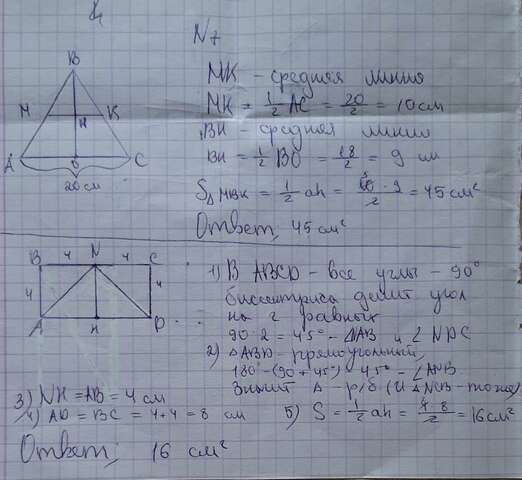 N7
B
M
K
H
A
O
C
20 см
MK - средняя линия
MK = 1/2 AC = 20/2 = 10 см
BH - средняя линия
BH = 1/2 BO = 18/2 = 9 см
S△MBK = 1/2 ah = 10·9/2 = 45 см²
Ответ; 45 см²
B 4 N 4 C
4 4
A H D
1) В ABCD - все углы - 90°
биссектриса делит угол
на 2 равных
90:2 = 45° - ∠NAB и ∠NDC
2) △ABN - прямоугольный,
180° - (90 + 45°) = 45° - ∠ANB.
Значит △ - р/б (и △NCD - тоже)
3) NH = AB = 4 см
4) AD = BC = 4 + 4 = 8 см
5) S = 1/2 ah = 4·8/2 = 16 см²
Ответ; 16 см²